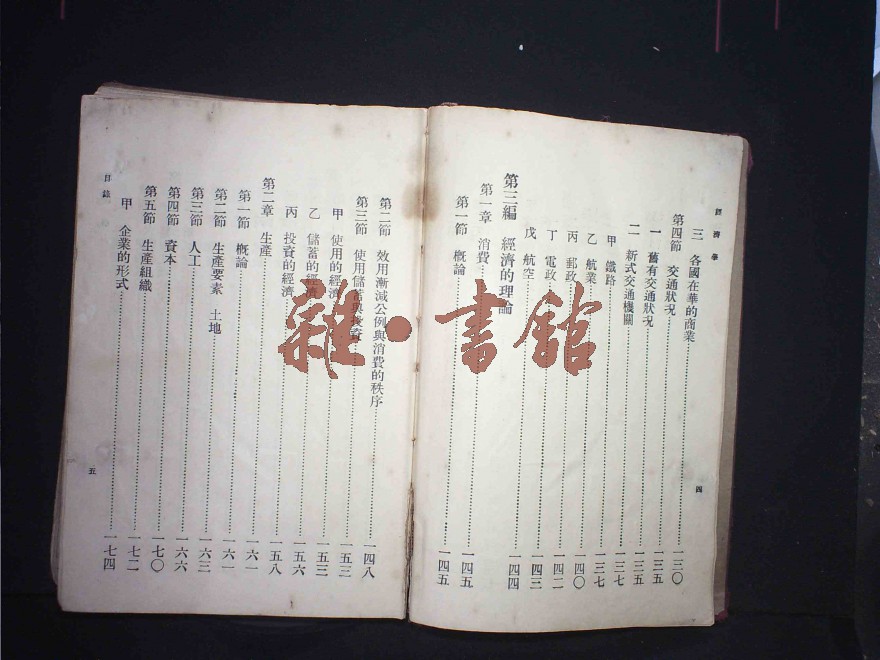 經濟學
三 各國在華的商業……一三〇
第四節 交通狀況……一三五
一 舊有交通狀況……一三五
二 新式交通機關……一三七
甲 鐵路……一三七
乙 航業……一四〇
丙 郵政……一四二
丁 電政……一四三
戊 航空……一四四
第三編 經濟的理論
第一章 消費……一四五
第一節 概論……一四五
四
第二節 效用漸減公例與消費的秩序……一四八
第三節 使用儲蓄與投資……一五三
甲 使用的經濟……一五三
乙 儲蓄的經濟……一五六
丙 投資的經濟……一五八
第二章 生產……一六一
第一節 概論……一六一
第二節 生產要素 土地……一六三
第三節 人工……一六六
第四節 資本……一七〇
第五節 生產組織……一七二
甲 企業的形式……一七四
目錄
五
雜·書館